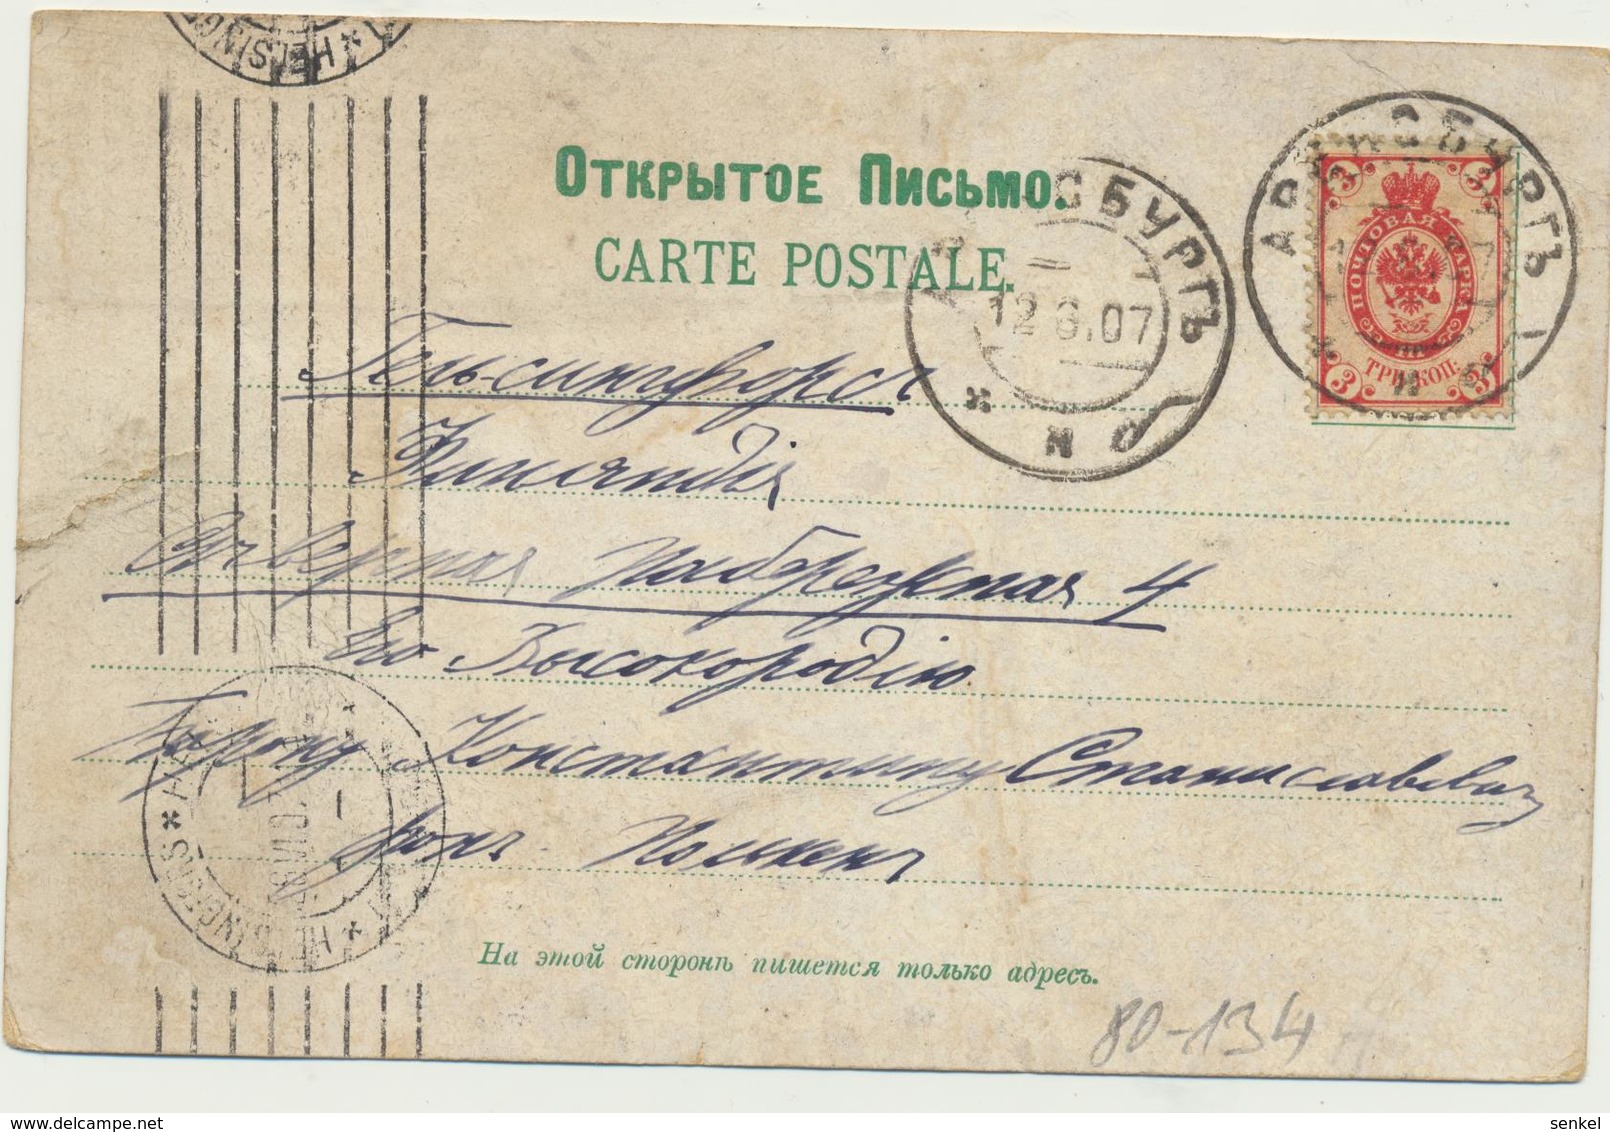 HELSINGF
ОТКРЫТОЕ ПИСЬМО.
CARTE POSTALE.
АРЕНСБУРГЪ
12.6.07
АРЕНСБУРГЪ
3 3
ПОЧТОВАЯ МАРКА
3 ТРИ КОП. 3
Гельсингфорсъ
Финляндія
Сѣверная Набережная 4
Его Высокородію
Барону Константину Станиславовичу
фонъ
HELSINGFORS
На этой сторонѣ пишется только адресъ.
80-134
senkel